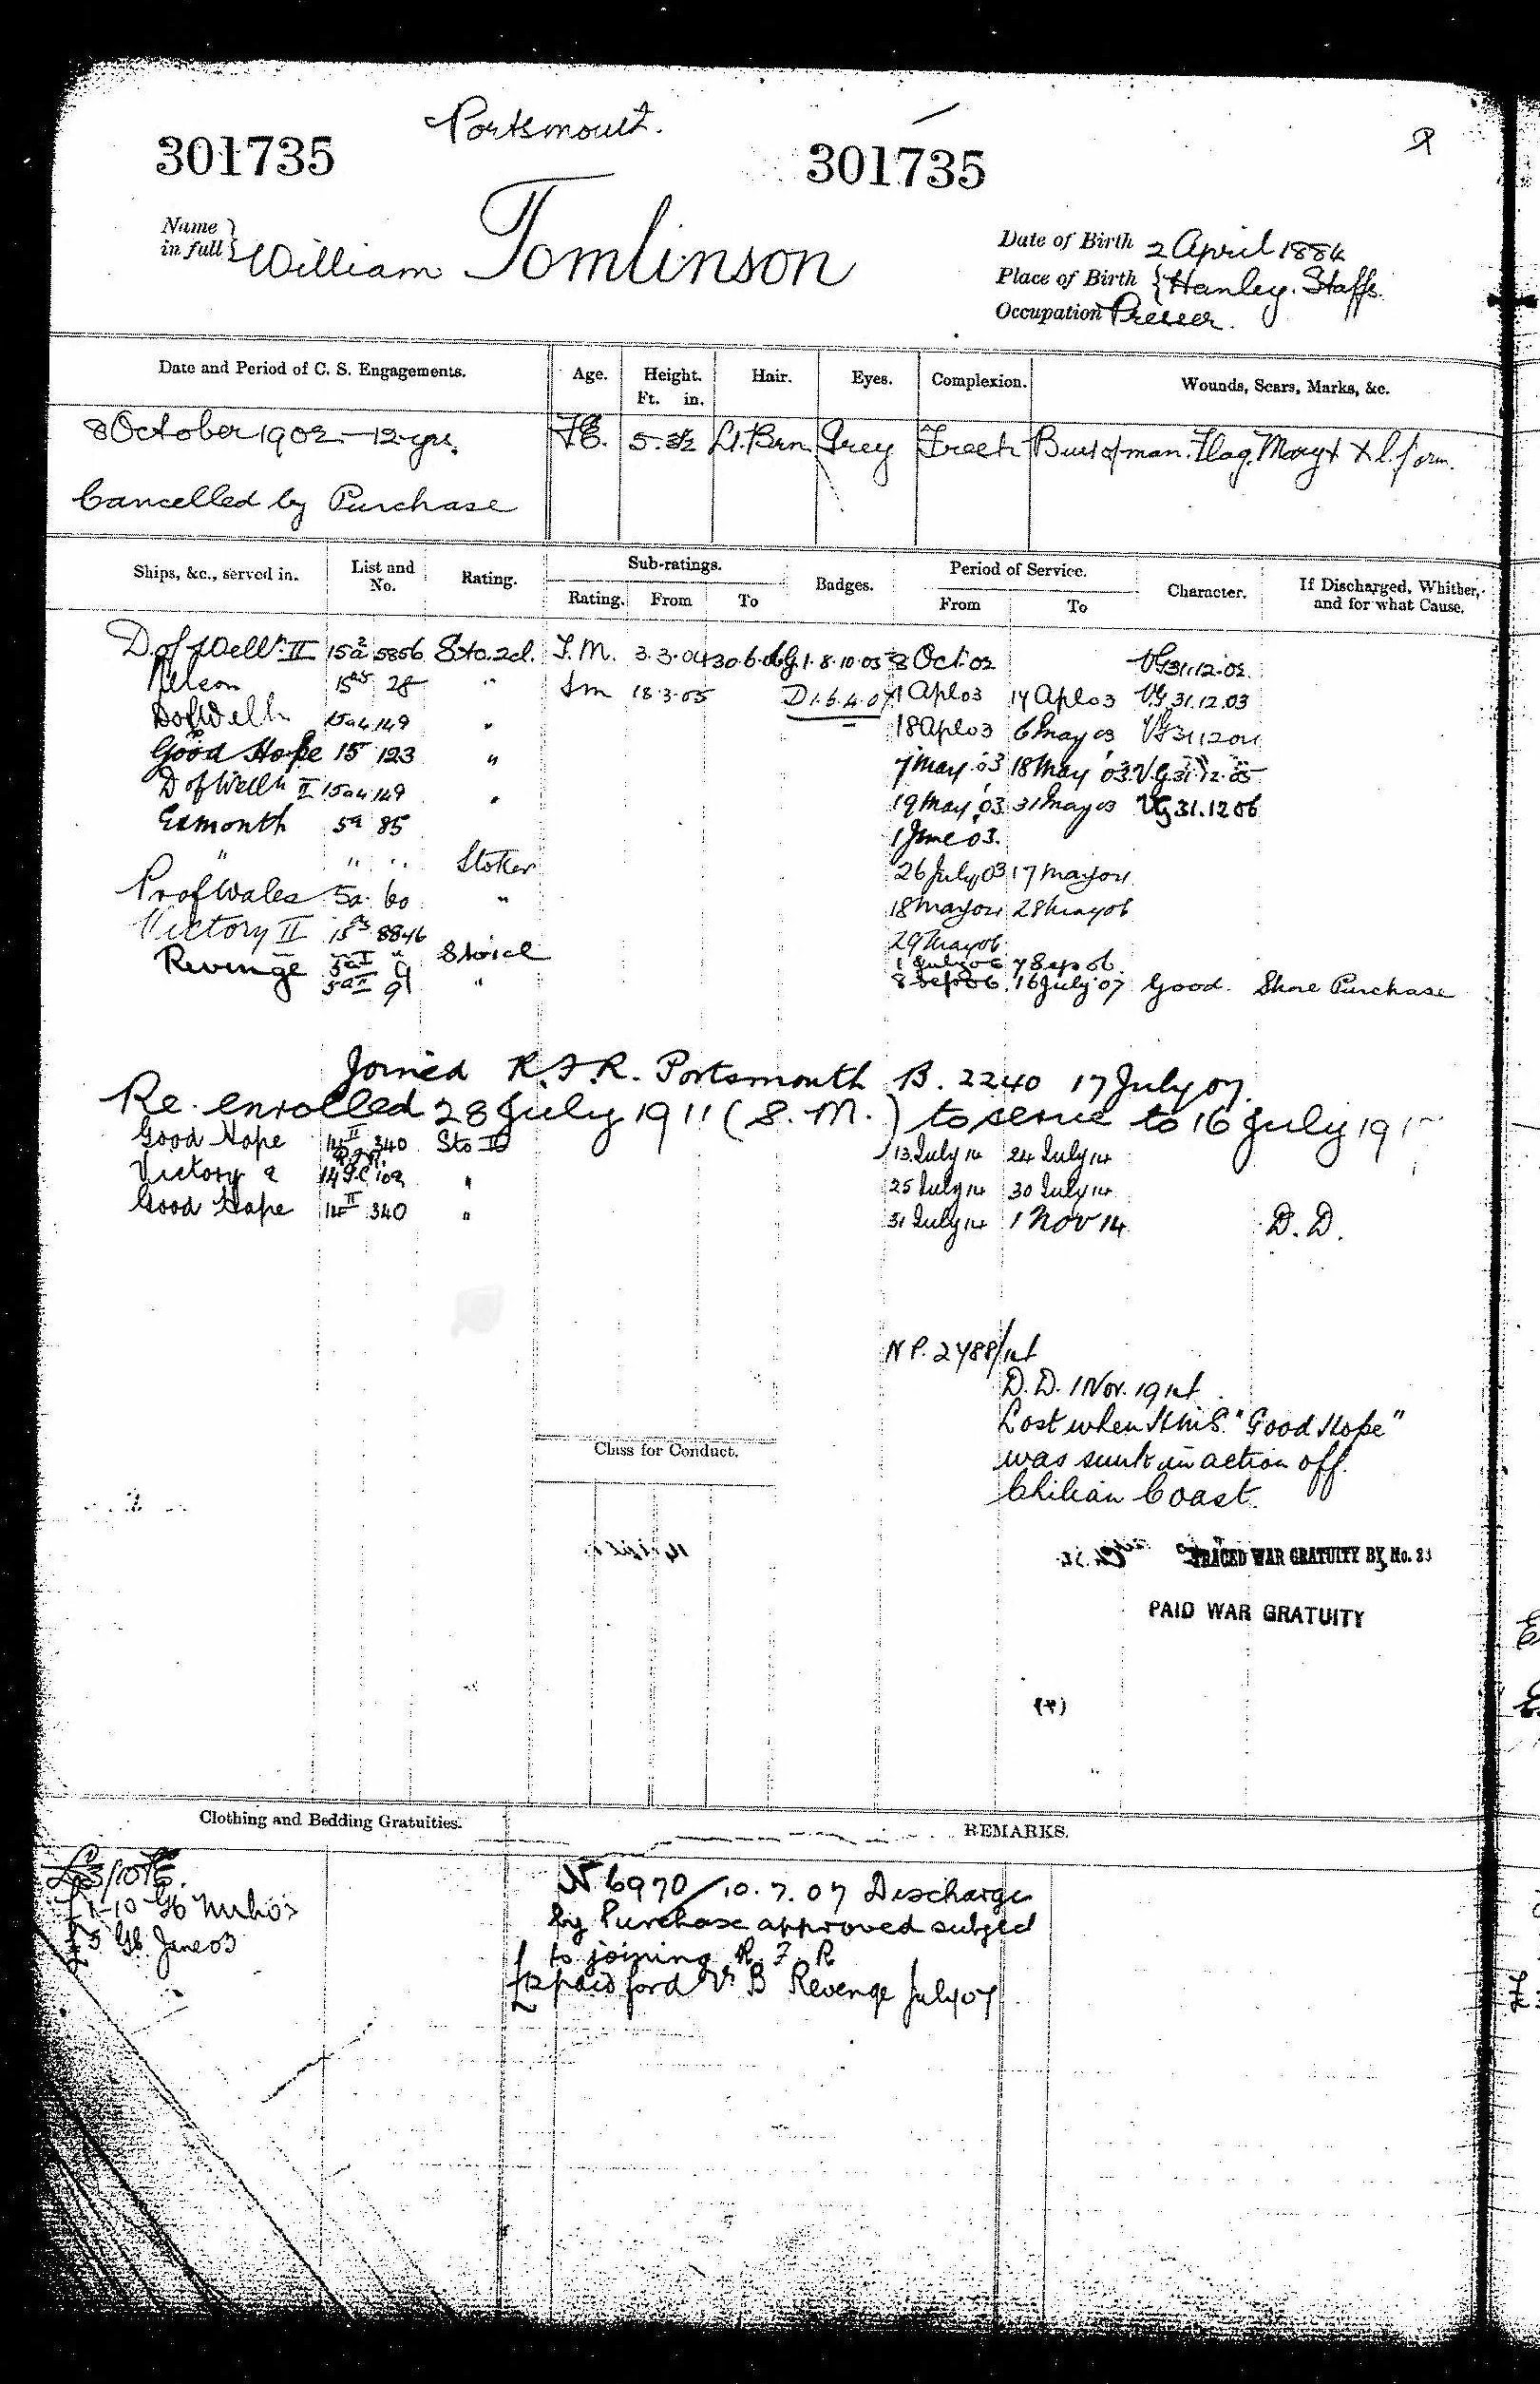 Portsmouth.
301735 301735
Name in full William Tomlinson
Date of Birth 2 April 1884
Place of Birth Hanley. Staffs.
Occupation Presser.
Date and Period of C. S. Engagements. Age. Height. Ft. in. Hair. Eyes. Complexion. Wounds, Scars, Marks, &c.
8 October 1902 - 12 yrs. 5. Lt. Brn Grey Fresh Bust of man. Flag. Mary l. form.
Cancelled by Purchase
Ships, &c., served in. List and No. Rating. Sub-ratings. Badges. Period of Service. Character. If Discharged, Whither, and for what Cause.
Rating. From To From To
D. of Well. II 15a2 5856 Sto. 2cl. 3.3.04 30.6. G.1.8.10.05 8 Oct. 02 VG 31.12.02.
Nelson 28 " Sm 18.3.05 D1.6.4.07 1 Apl 03 17 Apl 03 VG 31.12.03
D of Well 15a4 149 " 18 Apl 03 6 May 03 VG 31 12 04
Good Hope 15 123 " 7 May 03 18 May 03 VG 31.12.05
D of Well II 15a4 149 " 19 May 03 31 May 03 VG 31.12 06
Exmouth 5a 85 1 June 03.
" " " Stoker 26 July 03 17 May 04
Pr of Wales 5a 60 " 18 May 04 28 May 06
Victory II 8846 29 May 06
Revenge 5a I 9 Sto 1cl 1 July 06 7 Sep 06
5a II 9 " 8 Sep 06 16 July 07 Good. Shore Purchase
Joined R.F.R. Portsmouth B. 2240 17 July 07.
Re-enrolled 28 July 1911 (S.M.) to serve to 16 July 191
Good Hope 14 II 340 Sto 13 July 14 24 July 14
Victory " 25 July 14 30 July 14
Good Hope 14 II 340 " 31 July 14 1 Nov 14 D.D.
N.P. 2788/14
D.D. 1 Nov. 1914.
Lost when H.M.S. "Good Hope"
was sunk in action off
Chilian Coast.
Class for Conduct.
TRACED WAR GRATUITY BY No. 23
PAID WAR GRATUITY
Clothing and Bedding Gratuities. REMARKS.
N 6970/10.7.07 Discharge
by Purchase approved subject
to joining R F R
£12 paid Revenge July 07
June 03